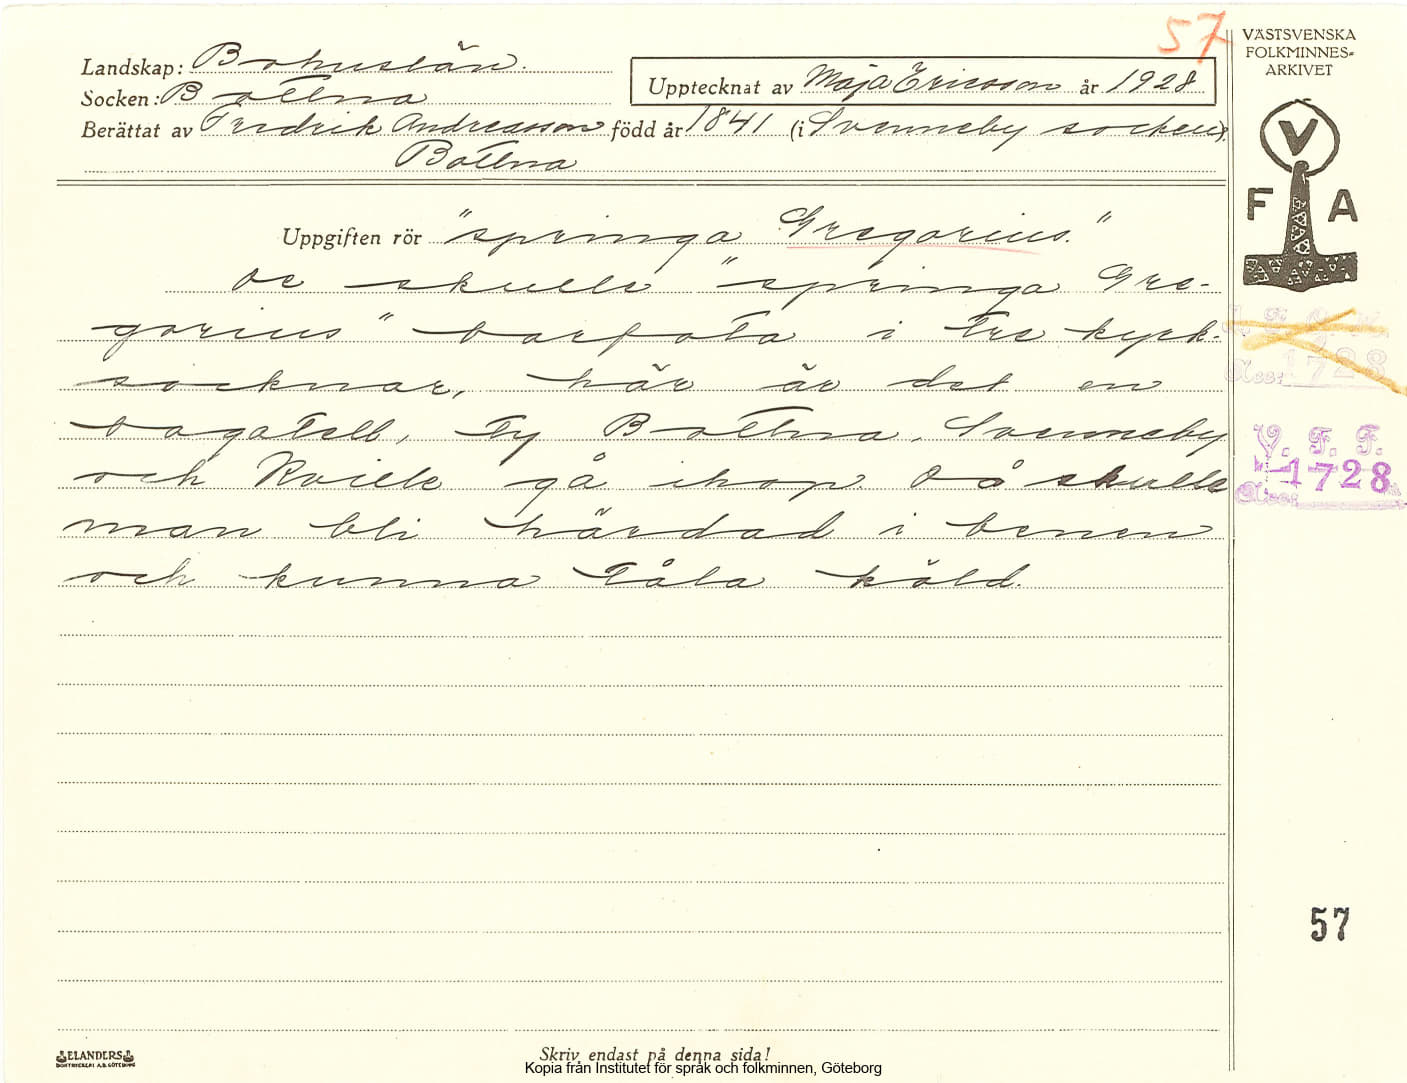 57
VÄSTSVENSKA
FOLKMINNES-
ARKIVET
Landskap: Bohuslän.
Upptecknat av Maja Ericsson år 1928
Socken: Bottna
Berättat av Fredrik Andreasson född år 1841 (i Svenneby socken).
Bottna
V
F A
Uppgiften rör "springa Gregorius."
De skulle "springa Gre-
gorius" barfota i tre kyrk-
socknar, här är det en
bagatell, ty Bottna, Svenneby
och Kville gå ihop. Då skulle
man bli härdad i benen
och kunna tåla köld.
Acc: 1728
V. F. F.
1728
Acc:
57
ELANDERS
BOKTRYCKERI A.B. GÖTEBORG
Skriv endast på denna sida!
Kopia från Institutet för språk och folkminnen, Göteborg